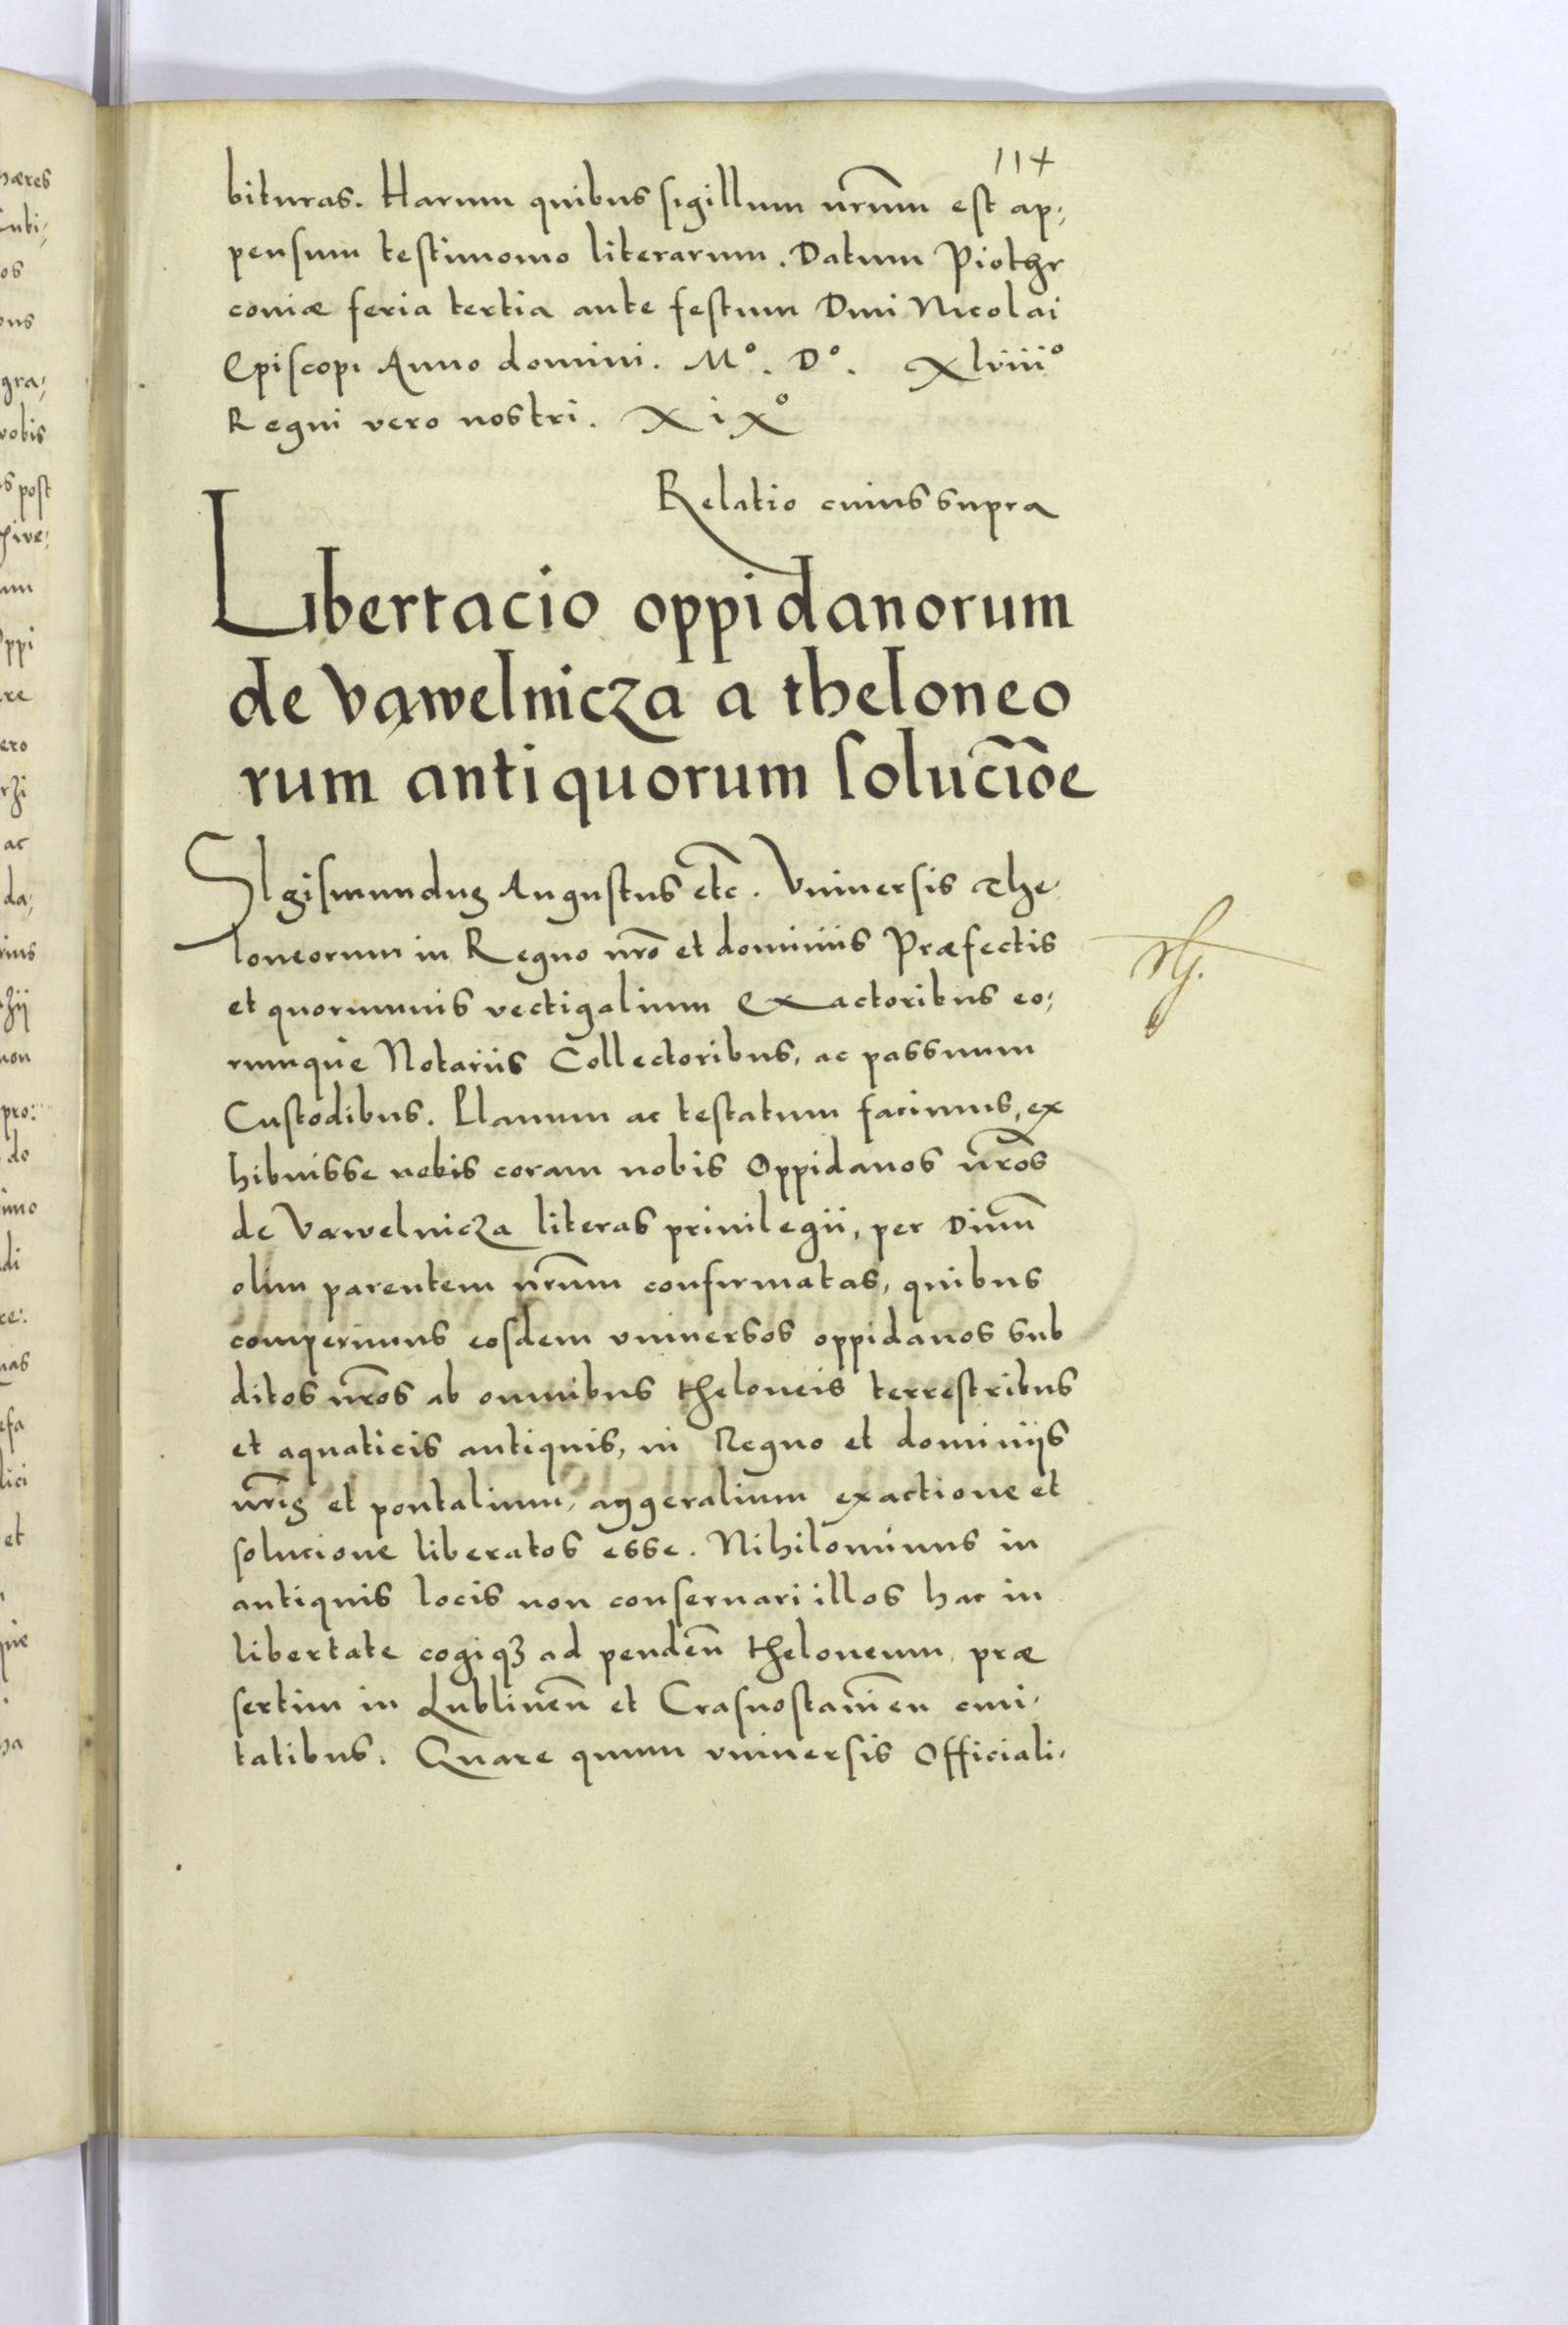 114
bituras. Harum quibus sigillum nr̃um est ap,
pensum testimonio literarum. Datum Piothr
coniæ feria tertia ante festum Diui Nicolai
Episcopi Anno domini. Mº. Dº. Xlviiiº
Regni vero nostri. XiXº
Relatio cuius supra
Libertacio oppidanorum
de Vąwelnicza a theloneo
rum antiquorum solucio̅e
SIgismundus Augustus etc̃. Vniuersis The
loneorum in Regno nr̃o et dominiis Præfectis
et quorumuis vectigalium Exactoribus eo,
rumque Notariis Collectoribus, ac passuum
Custodibus. Planum ac testatum facimus, ex
hibuisse nobis coram nobis Oppidanos nr̃os
de Vąwelnicza literas priuilegii, per Diuũ
olim parentem nr̃um confirmatas, quibus
comperimus eosdem vniuersos oppidanos sub
ditos nr̃os ab omnibus theloneis terrestribus
et aquaticis antiquis, in Regno et dominijs
nr̃is et pontalium, aggeralium exactione et
solucione liberatos esse. Nihilominus in
antiquis locis non conseruari illos hac in
libertate cogiqȝ ad penden̄ theloneum, præ
sertim in Lublinen̄ et Crasnostauien̄ ciui,
tatibus. Quare quum vniuersis Officiali,